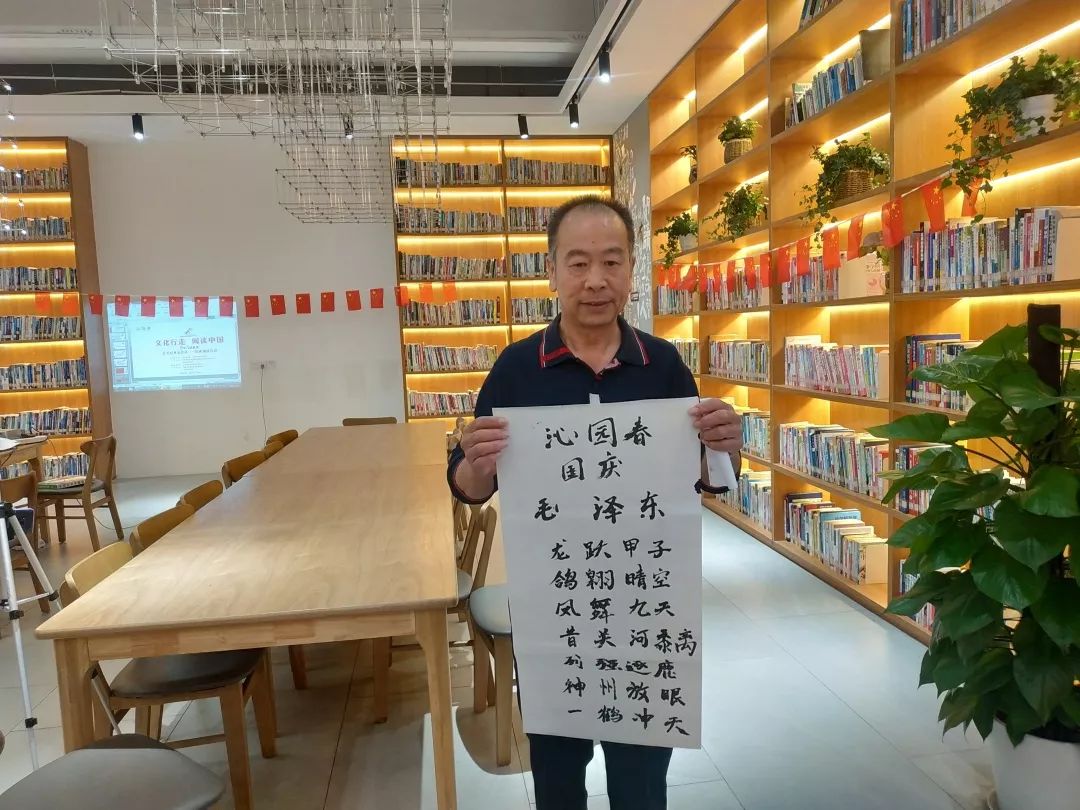 沁园春
国庆
毛泽东
龙跃甲子
鸽翱晴空
凤舞九天
昔关河黍离
列强逐鹿
神州放眼
一鹤冲天
文化行走 阅读中国